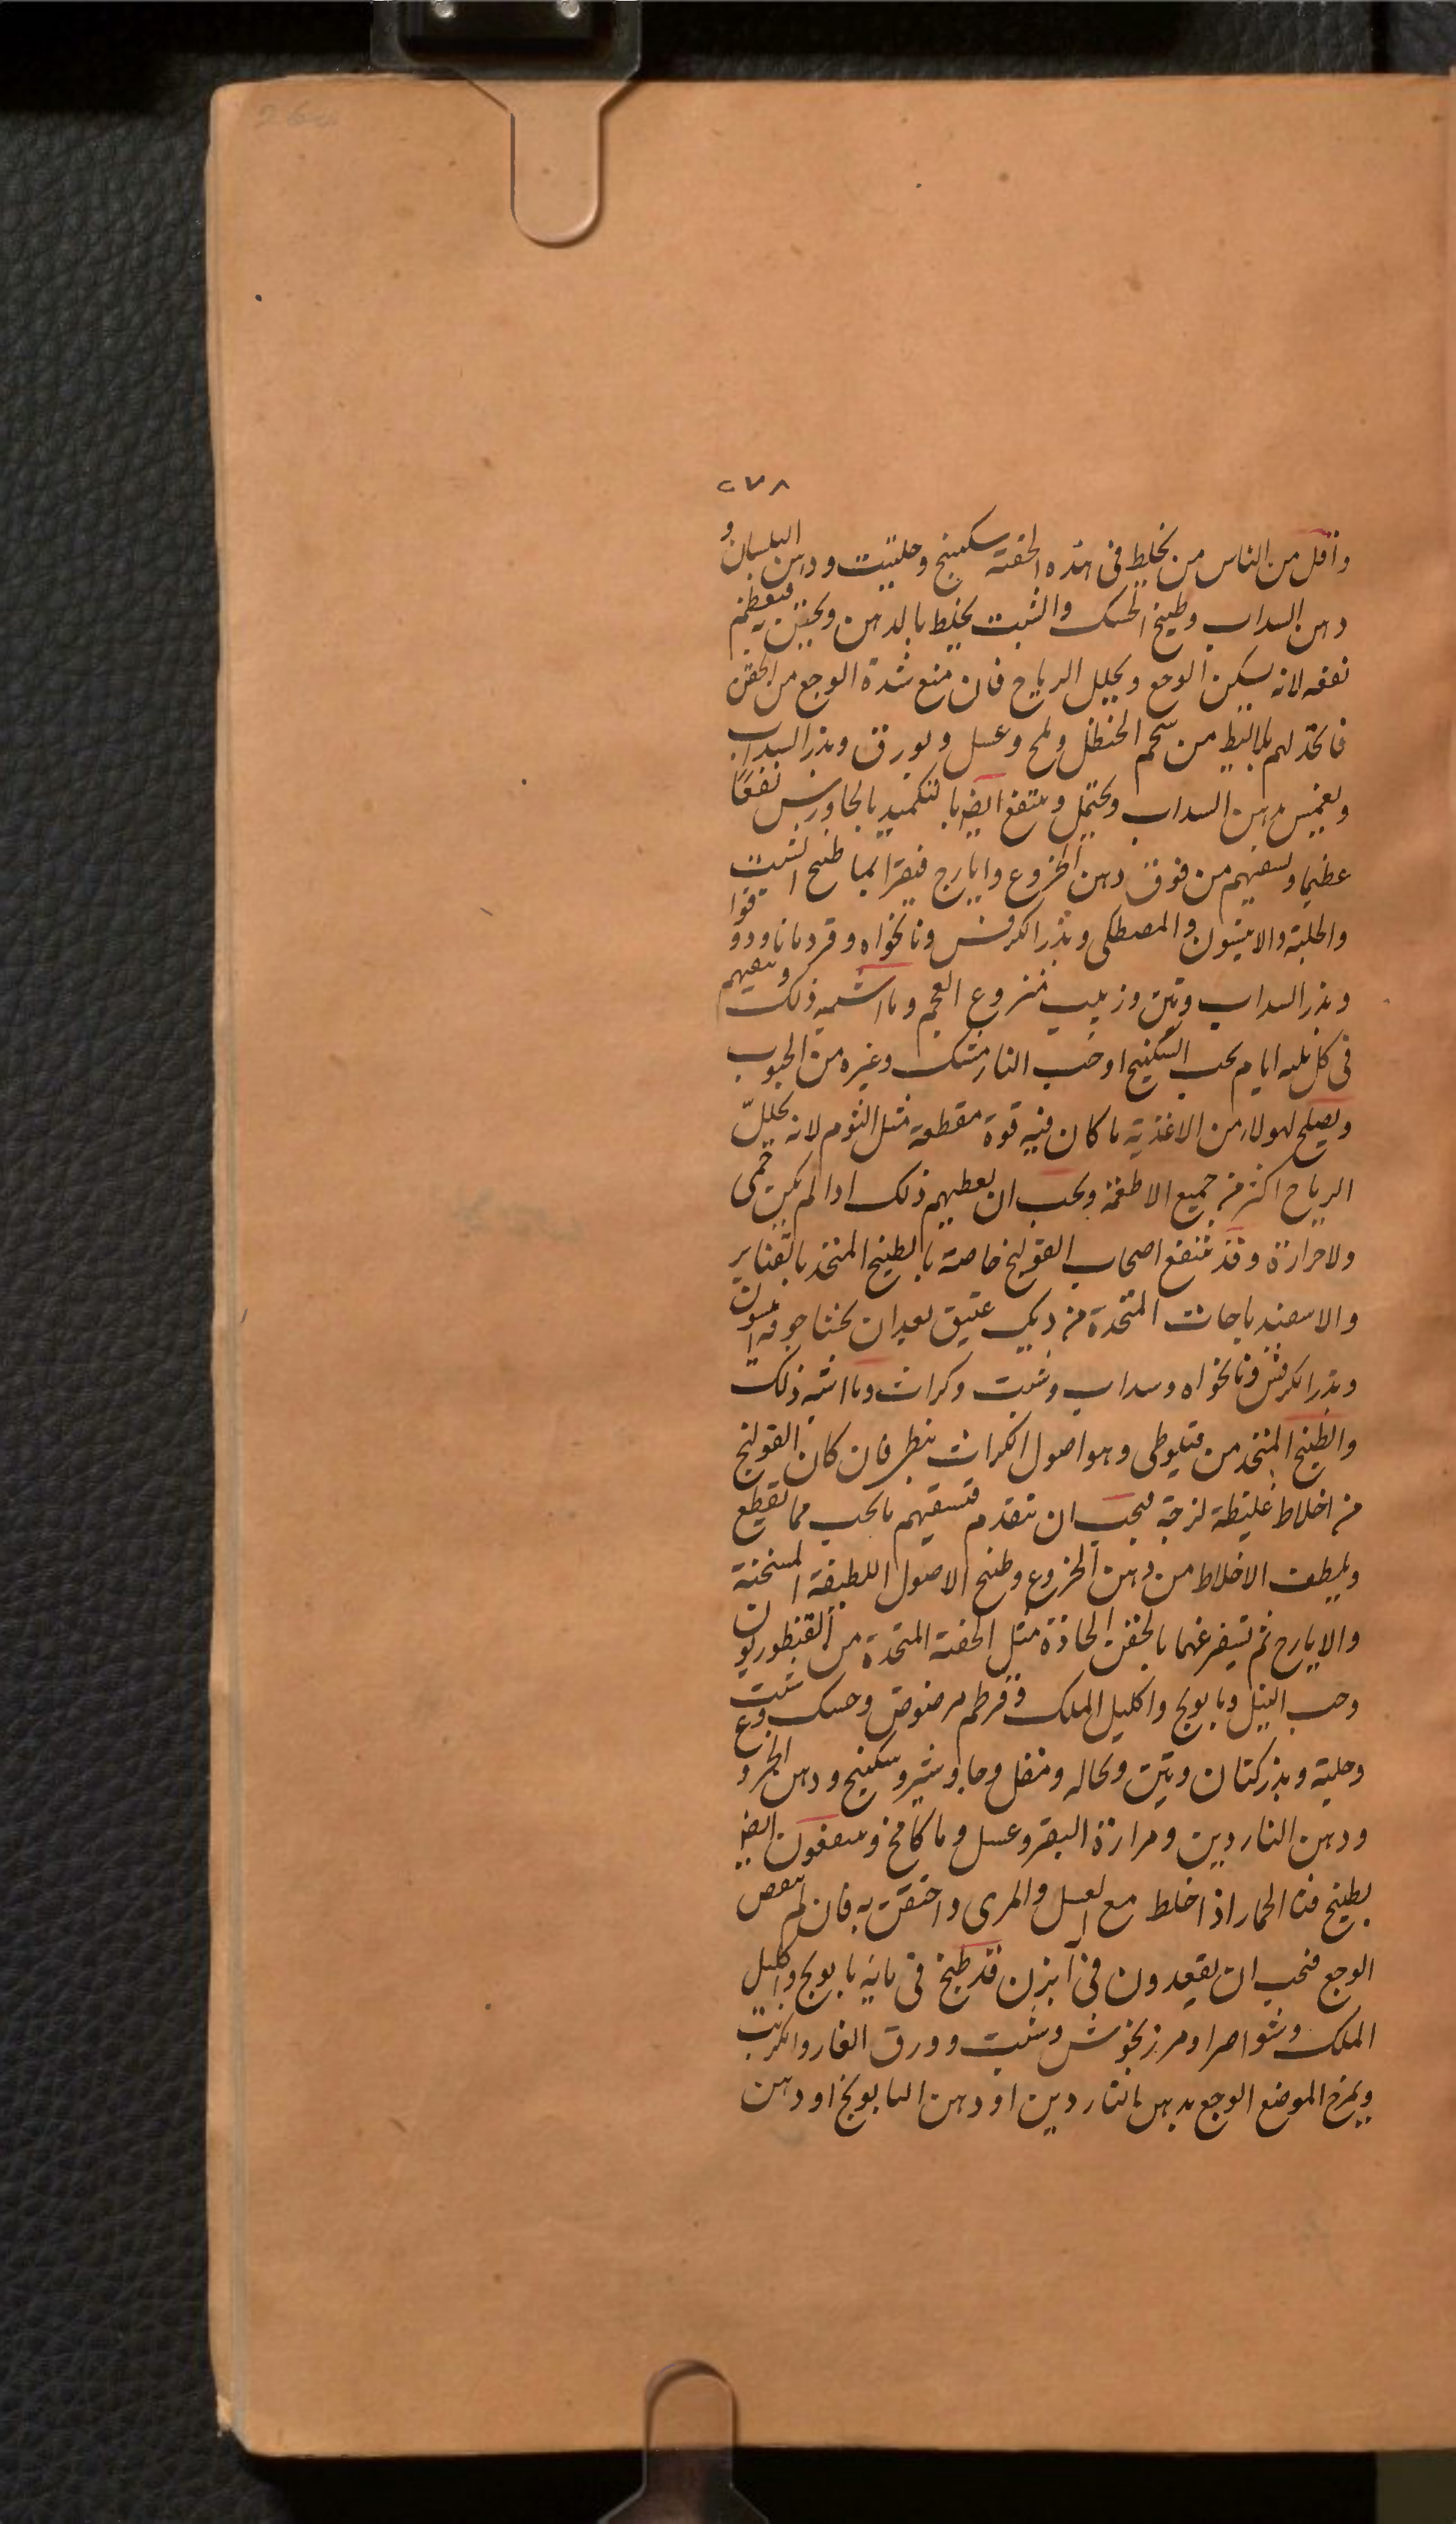 ٢٧٨
واقل من الناس من يخلط فى هذه الحقنة سكبينج وحلتيت ودهن البلسان و
دهن السداب وطبيخ الحسك والشبت يخلط بالدهن ويحقن به فيعظم
نفعه لانه يسكن الوجع ويحلل الرياح فان منع شدة الوجع من الحقن
فاتخذ لهم بلاليط من شحم الحنظل وملح وعسل وبورق وبذر السداب
ويغمس بدهن السداب ويحتمل وينتفع ايضا بالتكميد بالجاورس نفعا
عظيما وسقيهم من فوق دهن الخروع وايارج فيقرا بما طبخ الشبت
والحلبة والانيسون والمصطكى وبذر الكرفس ونانخواه وقردمانا ودوقوا
وبذر السداب وتين وزبيب منزوع العجم وما اشبه ذلك وسقيهم
فى كل ثلثه ايام بحب السكبينج او حب النارمشك وغيره من الحبوب
ويصلح لهولاء من الاغذية ما كان فيه قوة مقطعة مثل الثوم لانه يحلل
الرياح اكثر من جميع الاطعمة ويجب ان يعطيهم ذلك اذا لم يكن حمى
ولا حرارة وقد ينتفع اصحاب القولنج خاصة بالطبيخ المتخذ بالقنابر
والاسفيدباجات المتخذة من ديك عتيق بعد ان يحشا جوفه انيسون
وبذر الكرفس ونانخواه وسداب وشبت وكراث وما اشبه ذلك
والطبيخ المتخذ من قفلوطى وهو اصول الكراث ينظر فان كان القولنج
من اخلاط غليظة لزجة فيجب ان تتقدم فتسقيهم ما يجب مما تقطيع
ويلطف الاخلاط من دهن الخروع وطبخ الاصول اللطيفة المسخنة
والايارج ثم تستفرغها بالحقن الحادة مثل الحقنة المتخذة من القنطوريون
وحب النيل وبابونج واكليل الملك وقرطم مرضوض وحسك وشبت
وحلبة وبذر كتان وتين ونخاله ومقل وجاوشير وسكبينج ودهن الخروع و
ودهن الناردين ومرارة البقر وعسل وما كامخ وينتفعون ايضا
بطبيخ قثاء الحمار اذا خلط مع العسل والمرى واحتقن به فان لم ينقص
الوجع فيجب ان يقعدون فى ابزن قد طبخ فى مائه بابونج واكليل
الملك وشواصرا ومرزنجوش وشبت وورق الغار والكرنب
ويمرخ الموضع الوجع بدهن الناردين او دهن البابونج او دهن